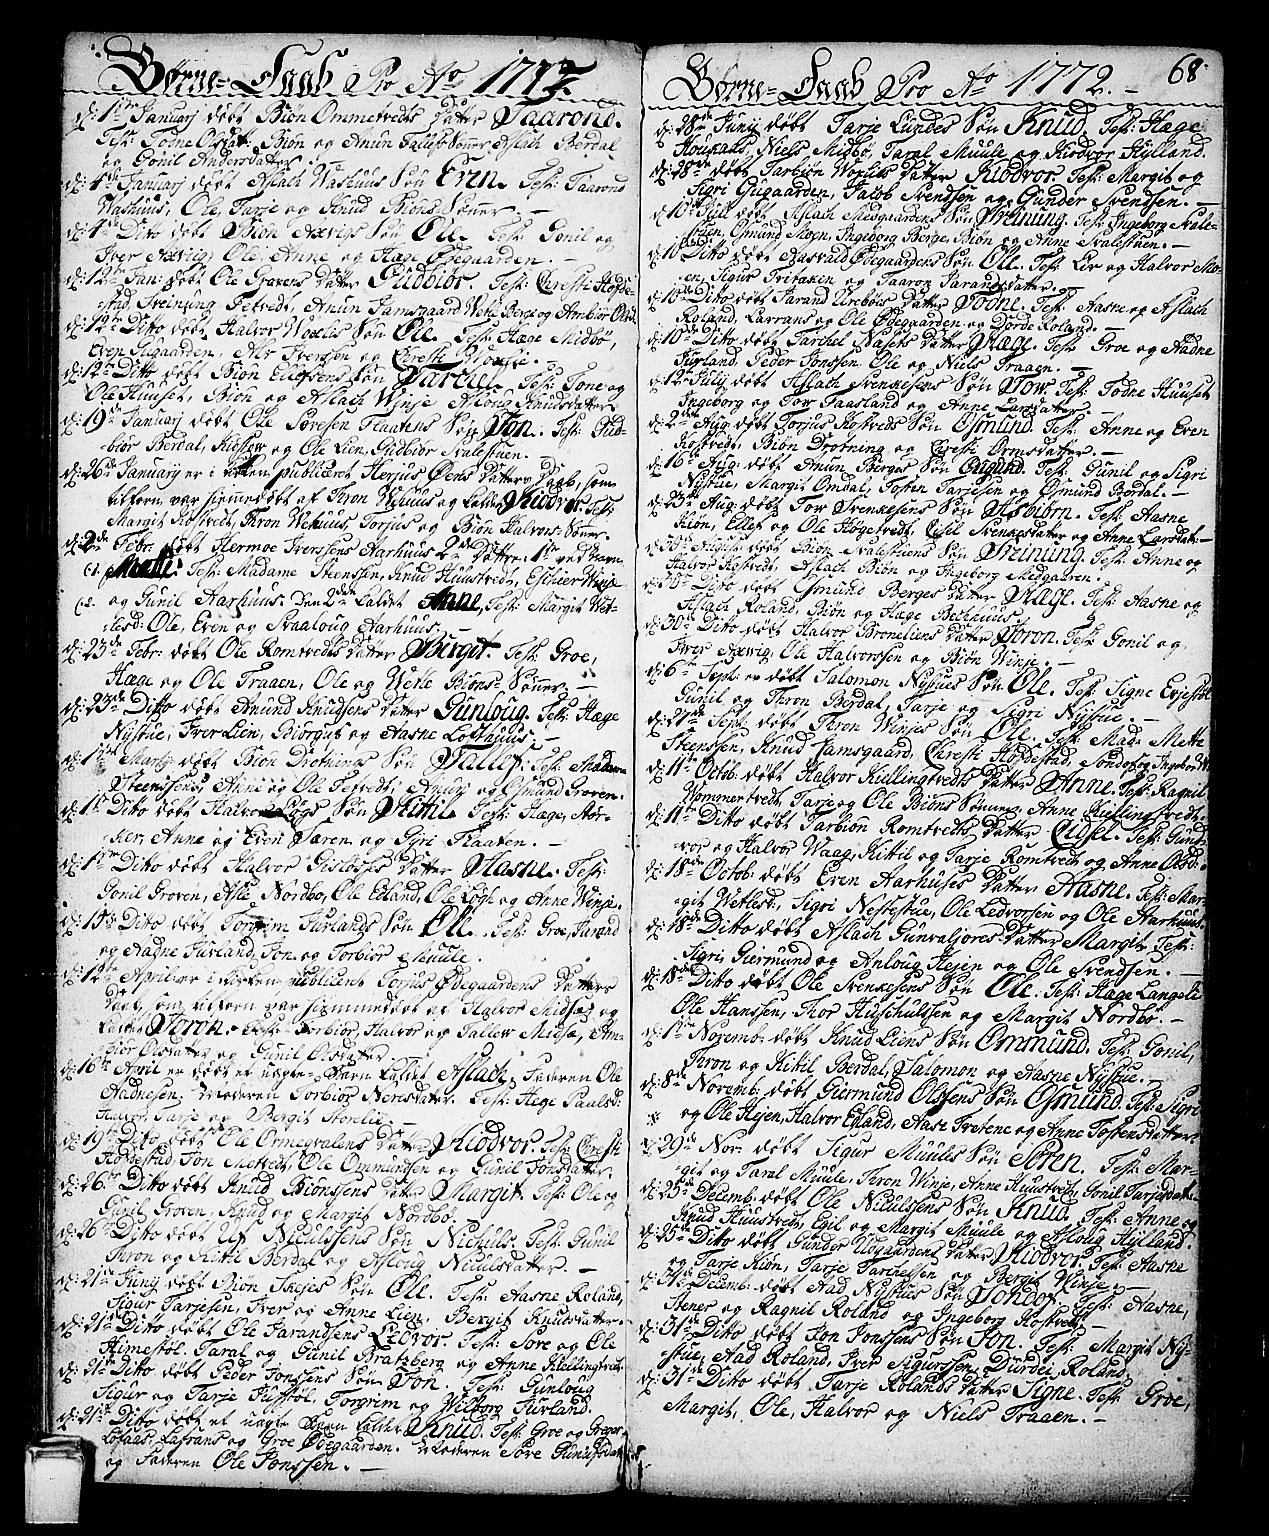 Børne-Daab Pro Ao 1772.
d: 1ste Januarj døbt Biøn Ommetvedts Datter Taarond.
Test: Todne Olsdat: Biøn og Amun Tallefs Sønner, Aslach Børdal
og Gonil Andersdatter.
d: 4de Januarj døbt Aslach Washuus Søn Even. Test: Taarond
Washuus, Ole, Tarje og Knud Biøns Sønner. —
d: 4de Dito døbt Biøn Axvigs Søn Ole. Test: Gonil og
Iver Axvig, Ole, Anne og Hæge Ødegaarden. —
d: 12te Jan: døbt Ole Gravens Datter Gudbiør. Test: Chresti Høyde-
stad, Treinung Fetvedt, Amun Jamsgaard, Wetle Berge og Annbiør Olsd:
d: 12te Ditto døbt Halvor Woxlis Søn Ole. Test: Hæge Midbø,
Even Gugaarden, Alv Iversen og Chresti Woxlie. —
d: 12te Ditto døbt Biøn Ellefsens Søn Tarje. Test: Tone og
Ole Huuset, Biøn og Aslach Winje, Asloug Knudsdatter
d: 19de Januarj døbt Ole Sørensen Flaatens Søn Jon. Test: Gud-
biør Berdal, og Ole Lien, Gudbiør Svalestuen. —
d: 26de Januarij er i Kirken publiceret Herjus Øens Datters Daab, som
tilforn var hiemmedøbt af Thron Wehuus og kaldet Kiodvor. Test:
Margit Rostvedt, Thron Wehuus, Torjus og Biøn Halvors-Sønner.
d: 2de Febr: døbt Hermoe Iversens Aarhuus 2de Døttre. 1ste ved Navn
Test: Madame Steenssen, Knud Huustvedt, Eschier Winje
og Gunil Aarhuus. Den 2den kaldet Anne, Test: Margit Wet-
lesd: Ole, Even og Svaaloug Aarhuus. —
d: 23de Febr: døbt Ole Romtvedts Datter Bergit. Test: Groe,
Hæge og Ole Traaen, Ole og Wetle Biøns-Sønner. —
d: 23de Ditto døbt Amund Knudsens Datter Gunloug. Test: Hæge
Nystue, Iver Lien, Biørgut og Aasne Lofthuus.
d: 1ste Martj døbt Biøn Drotnings Søn Tallef. Test: Madame
Steenssen, Anne og Ole Fetvedt, Amun og Osmund Groven.
d: 1ste Ditto døbt Halvor Søn Kittil. Test: Hæge,
Anne og Even Jaren og Gyri Flaaten. —
d: 1ste Ditto døbt Halvor Datter Aasne. Test:
Gonil Groven, Asle Nordbø, Ole Edland, Ole og Anne Winje.
d: 15de Ditto døbt Torgrim Jurlands Søn Ole. Test: Groe, Tarand
og Aadne Jurland, Jon og Torbiør Muule.
d: 12te April er i Kirken publiceret Terjus Ødegaardens Datters
Daab, som tilforn var hiemmedøbt af Halvor Midsæ og
kaldet Joron. Test: Torbiør, Halvor og Tallev Midsæ, An-
biør Olsdatter og Gunil Olsdatter.
d: 16de April er døbt et uægte Barn kaldet Aslach, Faderen Ole
Aadnesen. Moderen Torbiør Neresdatter. Test: Hæge Paalsd:
Halvor, Tarje og Bergit Storelie. —
d: 19de Dito døbt Ole Ormegralens Datter Kiodvor. Test: Chresti
Høydestad, Jon Metvedt, Ole Ommunsen og Gunil Jonsdatter.
d: 26de Ditto døbt Knud Biønssens Datter Margit. Test: Ole og
Gunil Groven, Knud og Margit Nordbø.
d: 26de Ditto døbt Niculssens Søn Nichuls. Test: Gunil
Thron og Kittil Berdal og Asloug Niculsdatter. —
d: 21de Junij døbt Biøn Skejes Søn Ole. Test: Aasne Roland,
Sigur Tarjesen, Iver og Anne Lien, Bergit Knudsdatter.
d: 21de Ditto døbt Ole Tarandsens Ledvor. Test: Søre og Ole
Himestøl, Taral og Gunil Bratzberg og Anne Kiellingtvedt.
d: 21de Ditto døbt Peder Jonssens Søn Jon. Test: Gunloug
Sigur og Tarje Torgrim og Wilborg Jurland.
d: 21de Ditto døbt et uægte Barn kaldet Knud. Test: Groe og Gregor
Lofaas, Lafrans og Groe Ødegaarden. Moderen Søre Knudsdatter
og Faderen Ole Jonssen. —
Børne-Daab Pro Ao 1772. — 68
d: 28de Junij døbt Tarje Lundes Søn Knud. Test: Hæge
Houkaas, Niels Midbø, Taral Muule og Kiodvor Hylland.
d: 28de døbt Tarbiøn Woxlis Datter Kiodvor. Test: Margit og
Sigri Gugaarden, Jacob Svendsen og Gunder Svendsen. —
d: 10de Julij døbt Aslach Midgaardens Søn Treinung. Test: Ingeborg Svale-
stuen, Osmund Moen, Ingeborg Berge, Biøn og Anne Svalestuen. —
d: 10de Ditto døbt Ødegaardens Søn Ole. Test: Liv og Halvor Mo-
en, Sigur Tritaxin og Taaron Tarandsdatter. —
d: 10de Ditto døbt Tarand Urebøes Datter Todne. Test: Aasne og Aslach
Roland, Lavrans og Ole Ødegaarden og Dorde Roland. —
d: 10de Ditto døbt Tarkel Næsets Datter Hæge. Test: Groe og Aadne
Jurland, Peder Jonssen, Ole og Niels Traaen. —
d: 12te Julij døbt Aslach Svenkesens Søn Tow. Test: Todne Huuset
Ingeborg og Tov Faasland og Anne Larsdatter. —
d: 2den Aug: døbt Torjus Rostveds Søn Osmund. Test: Anne og Even
Rostvedt, Biøn Drotning og Chresti Ormsdatter. —
d: 16de Aug: døbt Amun Berges Søn Test: Gunil og Sigri
Nystue, Margit Omdal, Tosten Tarjesen og Osmund Børdal. —
d: 23de Aug: døbt Tov Svenkesens Søn Asbiørn. Test: Aasne
Kiøn, Ellef og Ole Høgetvedt, Eisil Svenkesdatter og Anne Larsdat: —
d: 30de Augst: døbt Biøn Svalestuens Søn Treinung. Test: Anne og
Halvor Rostvedt, Aslach Biøn og Ingeborg Midgaaren.
d: 30te Dito døbt Osmund Berges Datter Hæge. Test: Aasne og
Aslach Roland, Biøn og Hæge Bechhuus.
d: 30te Ditto døbt Halvor Broneliens Datter Joron. Test: Gonil og
Iver Axvig, Ole Halvorssen og Biøn Winje. —
d: 6te Sept: er døbt Salomon Nystues Søn Ole. Test: Signe
Gunil og Thron Berdal, Tarje og Sigri Nystue. —
d: 27de Sept: døbt Thron Winjes Søn Ole. Test: Mad: Mette
Steenssen, Knud Jamsgaard, Chresti Høydestad, Sondov og Ingebor
d: 11te Octob: døbt Halvor Kiellingtvedts Datter Anne. Test: Ragnil
Wommertvedt, Tarje og Ole Biøns Sønner, Anne Kiellingtvedt.
d: 11te Ditto døbt Tarbiøn Romtvedts Datter Eisil. Test:
og Halvor Waag, Kittil og Tarje Romtvedt og Anne Olsd:
d: 18de Octob: døbt Even Aarhuses Datter Aasne. Test: Mar-
git Wetlest, Sigri Nestestue, Ole Ledvorsen og Ole Aarhuus.
d: 18de Ditto døbt Aslach Gunvaljores Datter Margit. Test:
Sigri, Giermund og Anloug Hejen og Ole Svendsen. —
d: 18de Ditto døbt Ole Svenkesens Søn Ole. Test: Hæge Langelie
Ole Hanssen, Thor og Margit Nordbø. —
d: 1ste Novemb: døbt Knud Liens Søn Ommund. Test: Gonil,
Thron og Kittil Berdal, Salomon og Aasne Nystue. —
d: 8de Novemb: døbt Giermund Olssens Søn Osmund. Test: Sigri
og Ole Hejen, Halvor Edland, Aase Tvetene og Anne Tostensdatter.
d: 29de Nov: døbt Sigur Muuls Søn Søren. Test: Mar-
git og Taral Muule, Thron Winje, Anne Huustvedt, Gonil Tarjesdat:
d: 25de Decemb: døbt Ole Niculssens Søn Knud. Test: Anne og
Knud Huustvedt, Egil og Margit Muule og Asloug Hylland.
d: 25de Ditto døbt Gunder Uægaardens Datter Kiodvor. Test: Aasne
og Tarje Kiøn, Tarje Tarchelsen og Bergit Winje. —
d: 31te Decemb: døbt Aad Nystues Søn Sondov. Test: Aasne,
Stener og Ragnil Roland og Ingeborg Rostvedt. —
d: 31te Ditto døbt Jon Jonssens Søn Jon. Test: Margit Ny-
stue, Aad Roland, Iver Sigurssen, Durdei Roland,
d: 31te Ditto døbt Tarje Rolands Datter Signe. Test: Groe,
Margit, Ole, Halvor og Niels Traaen. —